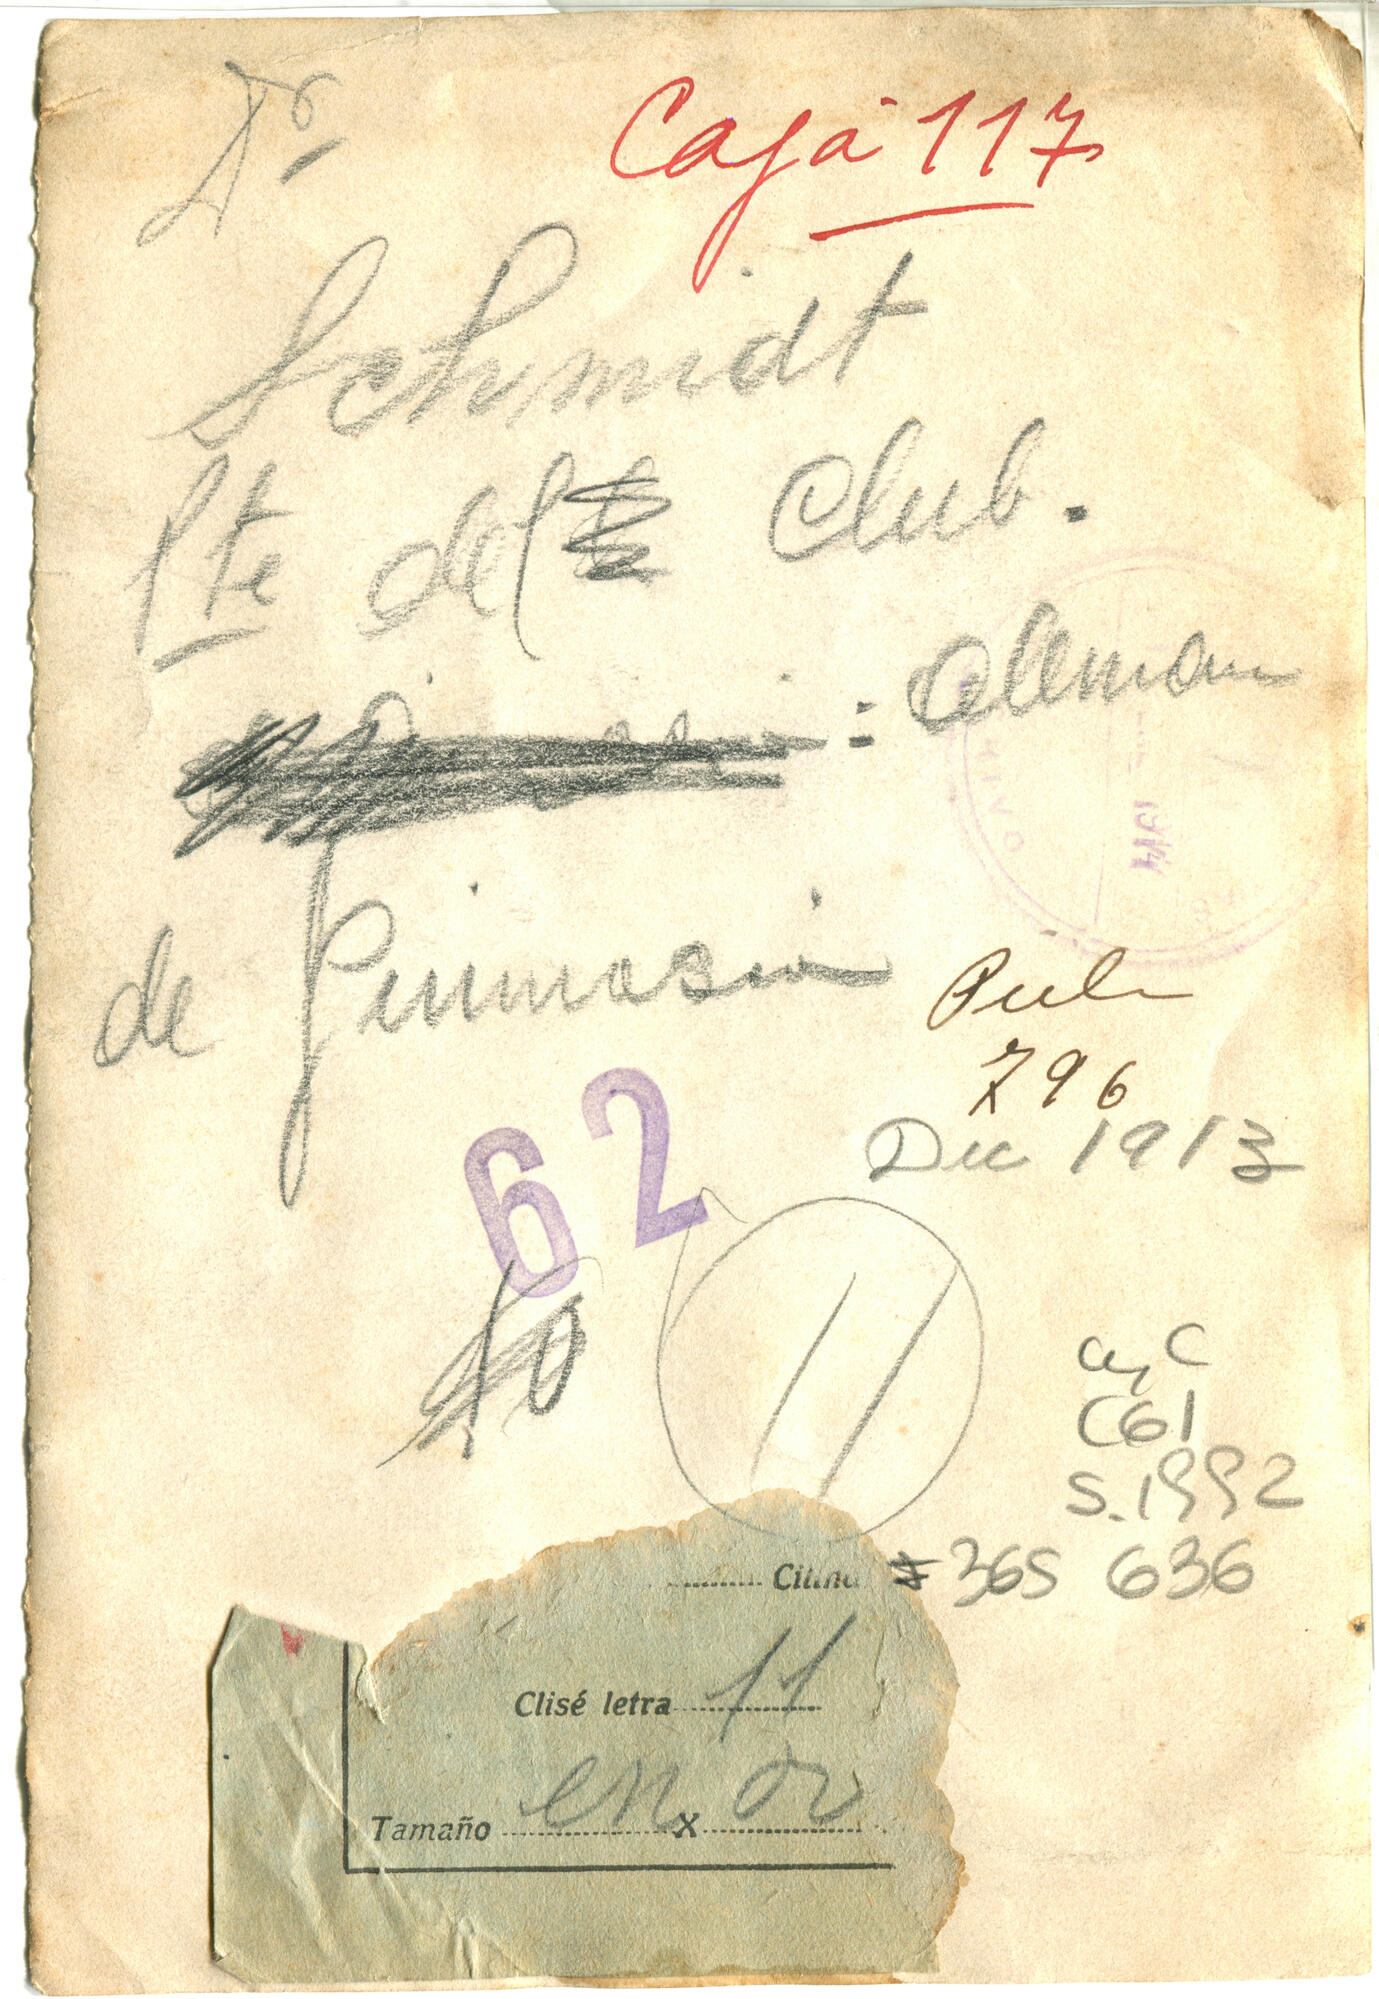 Dr
Caja 117
Schmidt
Pte del Club.
Aleman
de Gimnasia
Pub
796
Dic 1913
62
10
11
AyC
C61
S.1992
# 365 636
1914
Cilind
Clisé letra 11
Tamaño en x